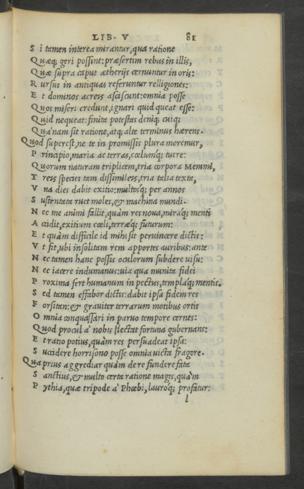 LIB. V 81
S i tamen interea mirantur, qua ratione
Quæq; geri possint: præsertim rebus in illis,
Quæ supra caput ætherijs cernuntur in oris:
R ursus in antiquas referuntur relligiones:
E t dominos acres asciscunt: omnia posse
Quos miseri credunt, ignari quid queat esse:
Quid nequeat: finita potestas deniq; cuiq;
Quànam sit ratione, atq; alte terminus hærens.
Quod superest, ne te in promissis plura moremur,
P rincipio, maria ac terras, cœlumq; tuere:
Quorum naturam triplicem, tria corpora Memmi,
T reis species tam dissimileis, tria talia texta,
V na dies dabit exitio: multosq; per annos
S ustentata ruet moles, & machina mundi.
N ec me animi fallit, quàm res noua, miraq; menti
A ccidit, exitium cœli, terræq; futurum:
E t quàm difficile id mihi sit peruincere dictis:
V t fit, ubi insolitem rem apportes auribus ante
N ec tamen hanc possis oculorum subdere uisu:
N ec iacere indu manus: uia qua munita fidei
P roxima fert humanum in pectus, templaq; mentis.
S ed tamen effabor: dictis dabit ipsa fidem res
F orsiten: & grauiter terrarum motibus ortis
O mnia conquassari in paruo tempore cernes:
Quod procul à nobis flectat fortuna gubernans:
E t ratio potius, quàm res persuadeat ipsa:
S uccidere horrisono posse omnia uicta fragore.
Qua prius aggrediar quàm de re fundere fata
S anctius, & multo certa ratione magis, quàm
P ythia, quæ tripode à Phœbi, lauroq; profatur:
l